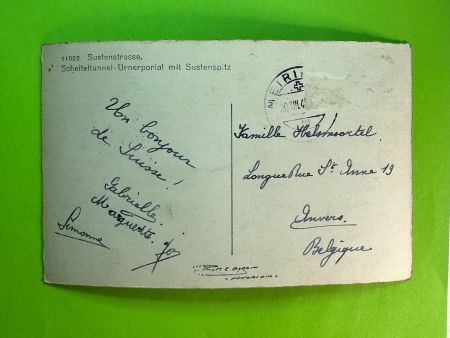 11022 Sustenstrasse.
Scheiteltunnel-Urnerportal mit Sustenspitz
MEIRI
Un bonjour
de Suisse!
Gabrielle,
Marguerite.
Simonne
Jos
Famille Helsmoortel.
Longue Rue St. Anne 19
Anvers.
Belgique